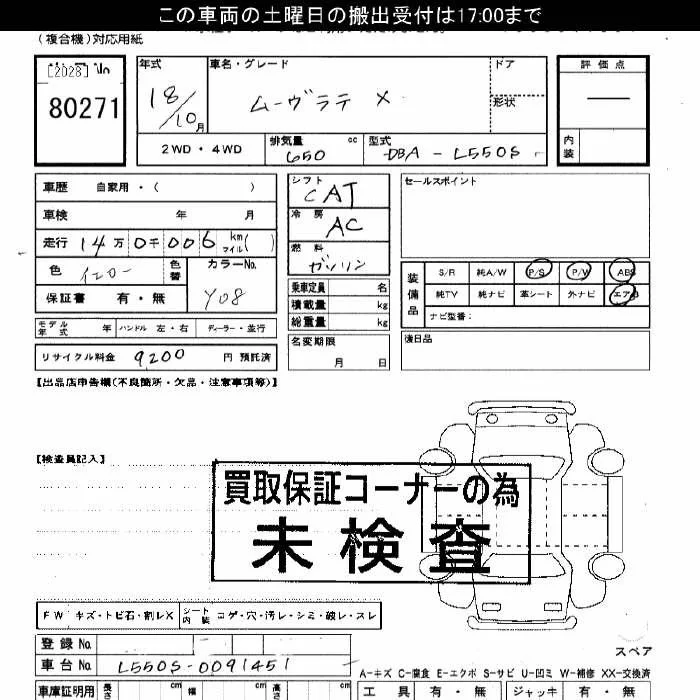 この車両の土曜日の搬出受付は17:00まで
(複合機)対応用紙
[2028] No
80271
年式
18/10月
車名・グレード
ムーヴラテ X
ドア
形状
評価点
内装
2WD・4WD
排気量 cc
650
型式
DBA-L550S
車歴 自家用・( )
車検 年 月
走行 14万0千006 km マイル( )
色 イエロー
色替
カラーNo.
Y08
保証書 有・無
シフト
CAT
冷房
AC
燃料
ガソリン
乗車定員 名
積載量 kg
総重量 kg
セールスポイント
装備品
S/R 純A/W P/S P/W ABS
純TV 純ナビ 革シート 外ナビ エアB
ナビ型番:
モデル年式 年 ハンドル 左・右 ディーラー・並行
名変期限
月 日
後日品
リサイクル料金 9200 円 預託済
【出品店申告欄(不良箇所・欠品・注意事項等)】
【検査員記入】
買取保証コーナーの為
未検査
FW キズ・トビ石・割レX
シート内装 コゲ・穴・汚レ・シミ・破レ・スレ
登録No.
車台No. L550S-0091451
スペア
A-キズ C-腐食 E-エクボ S-サビ U-凹ミ W-補修 XX-交換済
車庫証明用 長さ cm 幅 cm 高さ cm
工具 有・無 ジャッキ 有・無